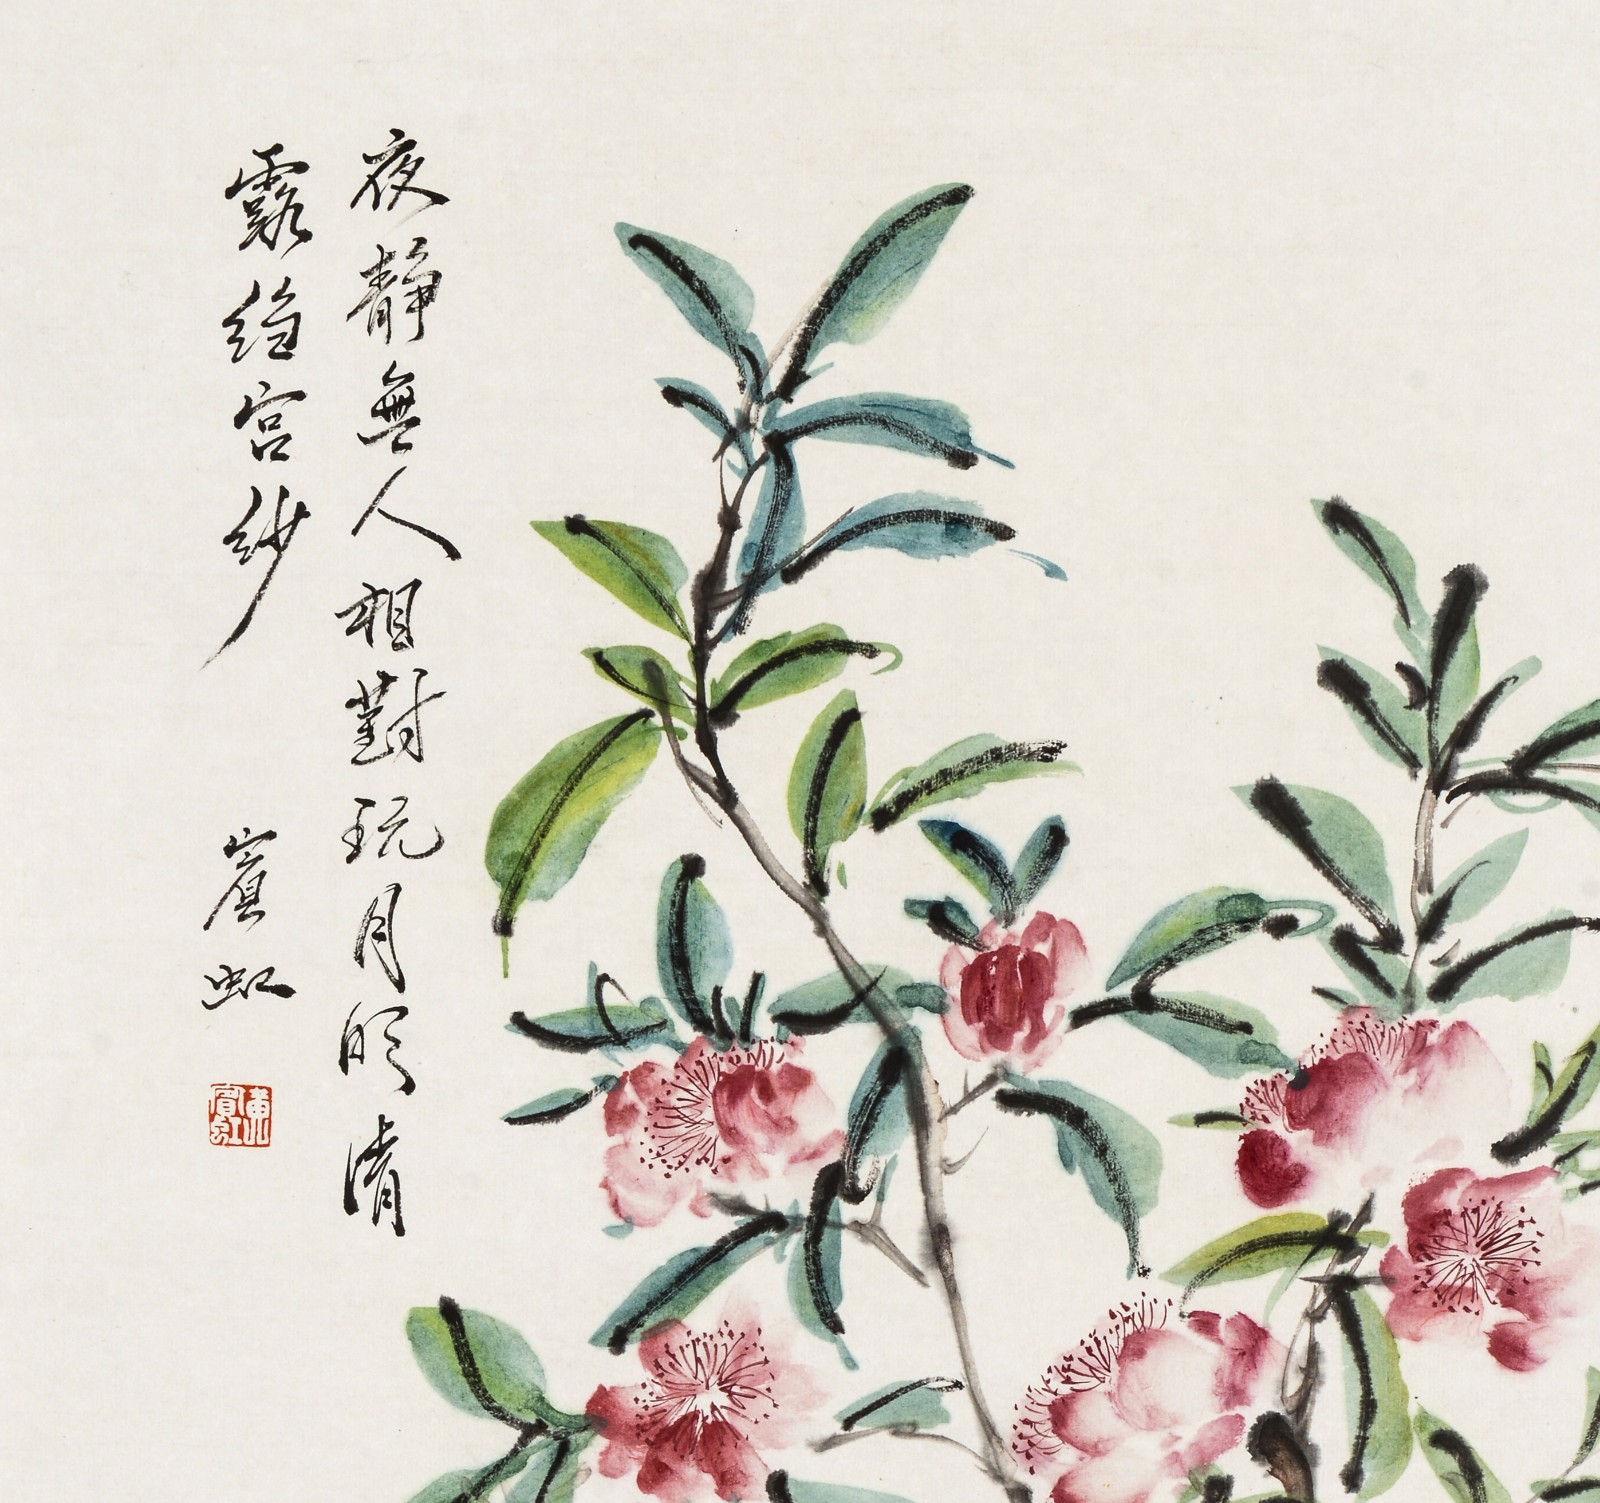 夜靜無人相對玩月明清
露絶宮紗
賓虹
黃賓虹